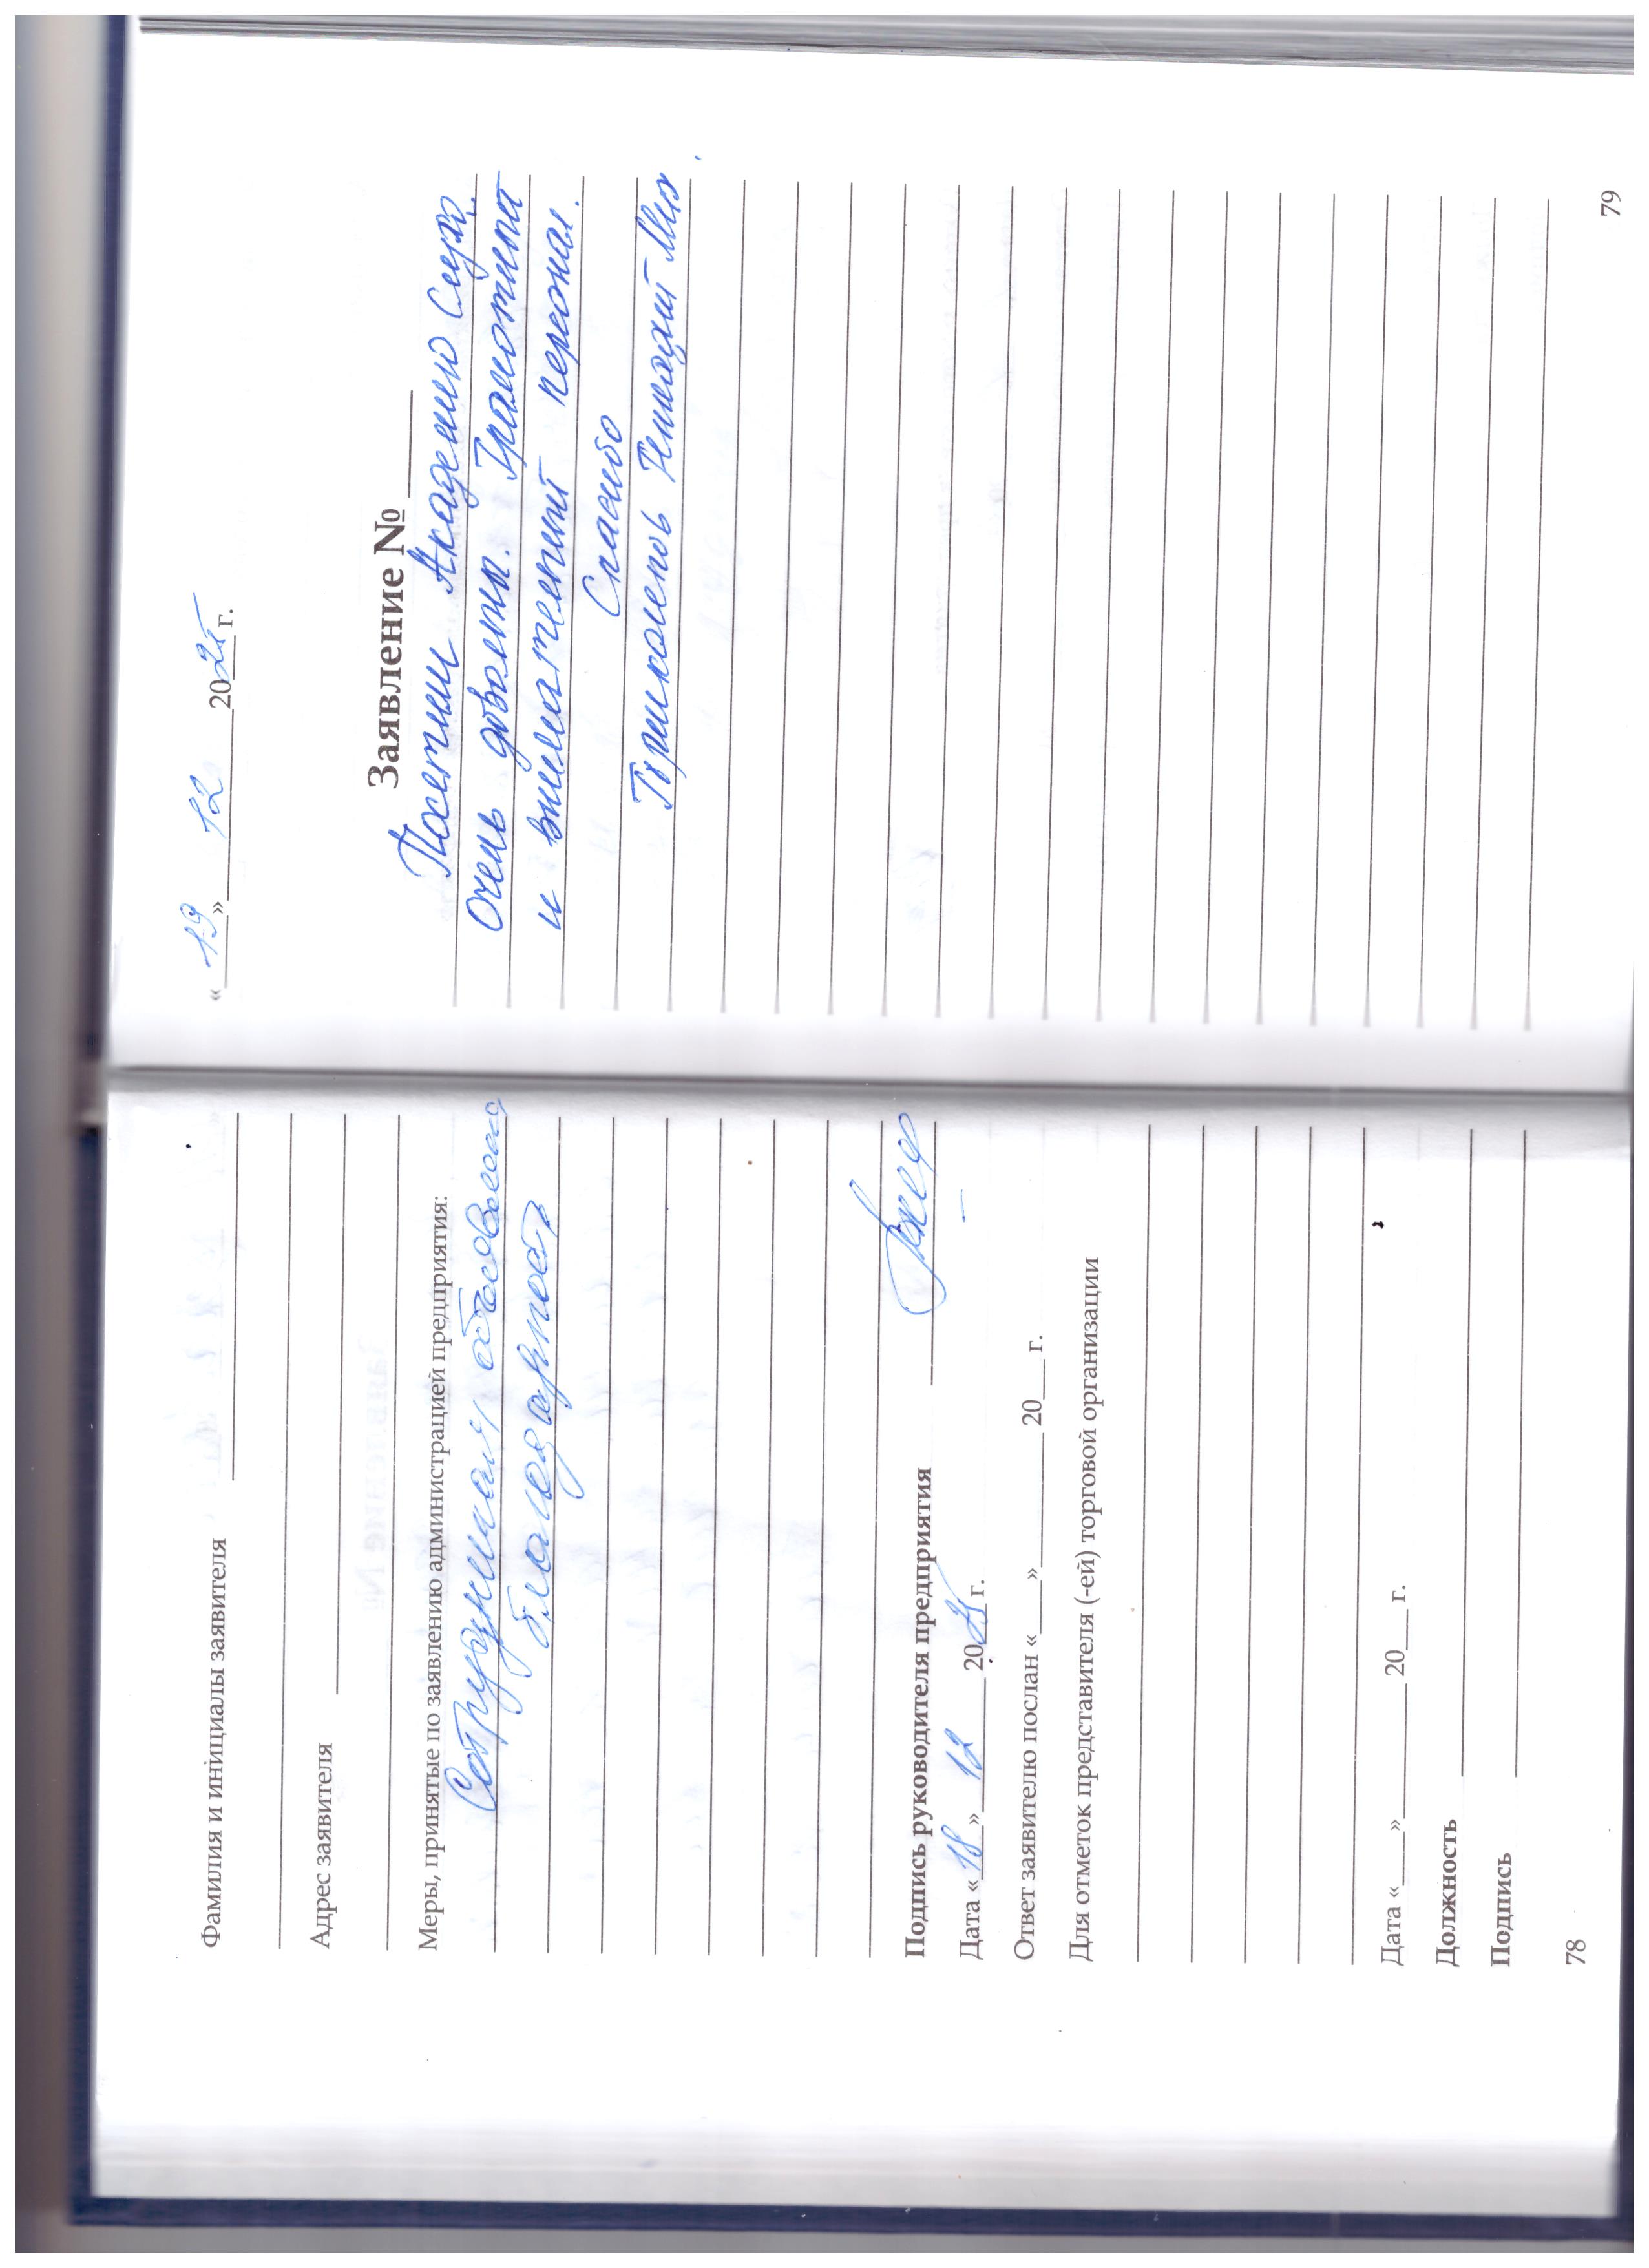 Фамилия и инициалы заявителя
Адрес заявителя
Меры, принятые по заявлению администрацией предприятия:
Сотрудникам объявлена
благодарность
Подпись руководителя предприятия
Дата «18» 12 2025 г.
Ответ заявителю послан «___» ______ 20___ г.
Для отметок представителя (-ей) торговой организации
Дата «___» ______ 20___ г.
Должность
Подпись
78
«19» 12 2025 г.
Заявление №
Посетили Академию Слуха.
Очень довольны. Грамотный
и внимательный персонал.
Спасибо
Геннадий Мих.
79